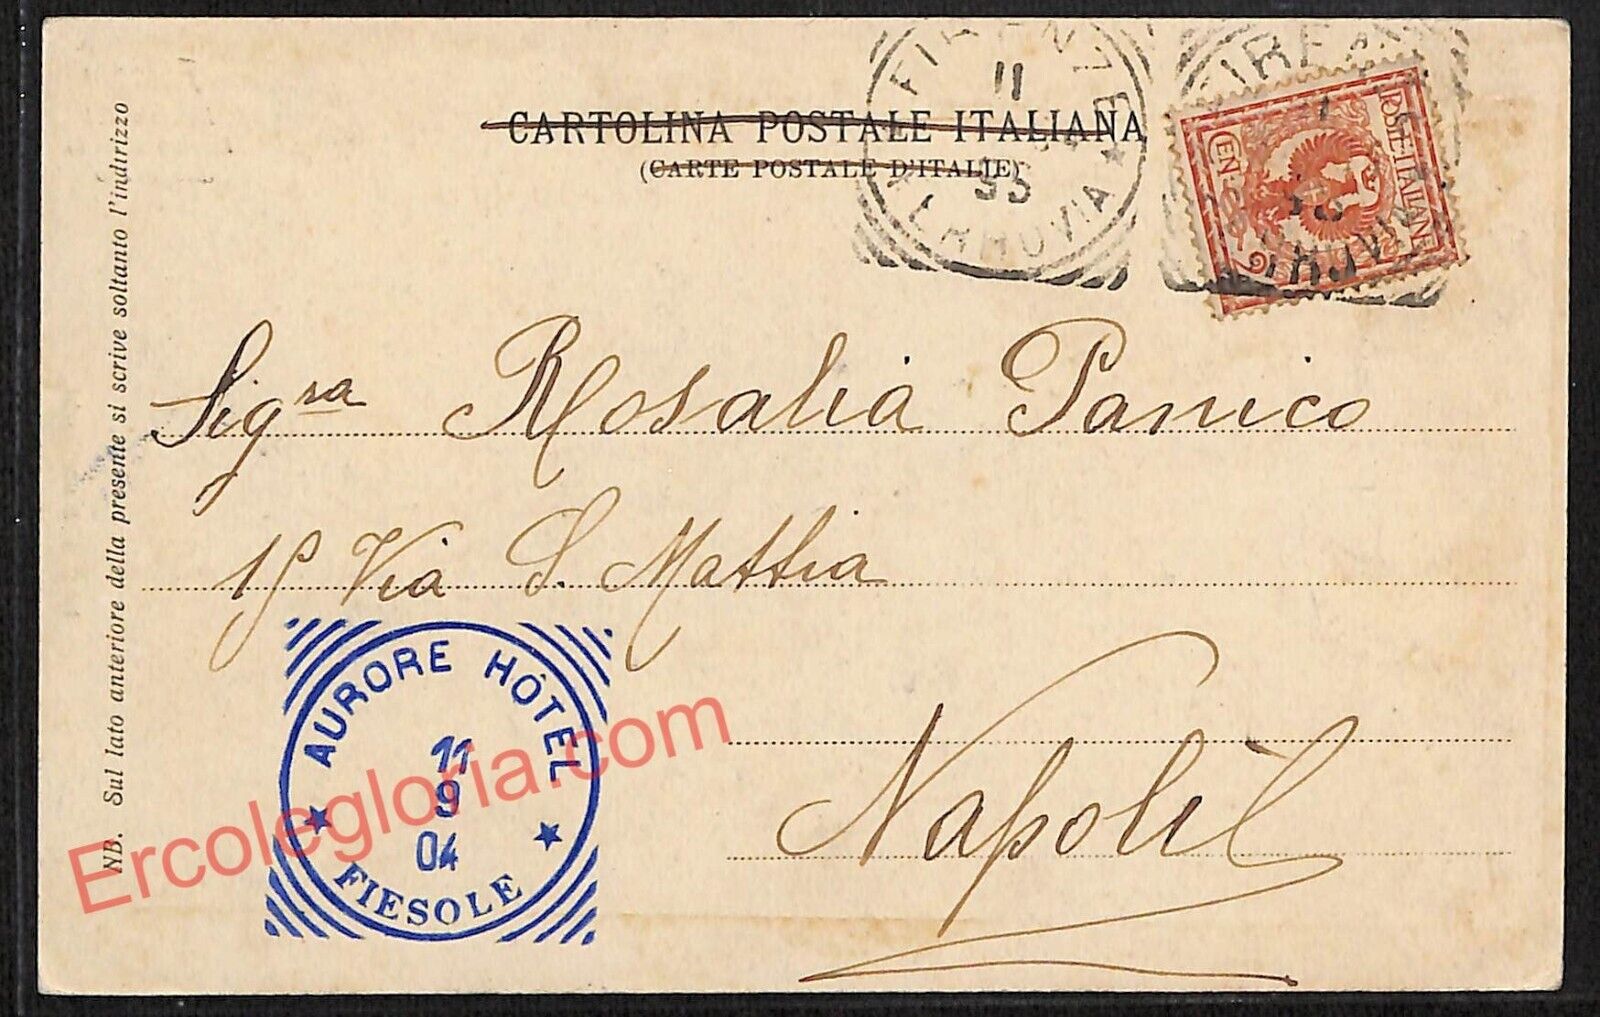 CARTOLINA POSTALE ITALIANA
(CARTE POSTALE D'ITALIE)
FIRENZE
11
FERROVIA
POSTE·ITALIANE
CEN
2
Sigra Rosalia Panico
Via S. Mattia
Napoli
AURORE HÔTEL
11
9
04
FIESOLE
NB. Sul lato anteriore della presente si scrive soltanto l'indirizzo
Ercolegloria.com